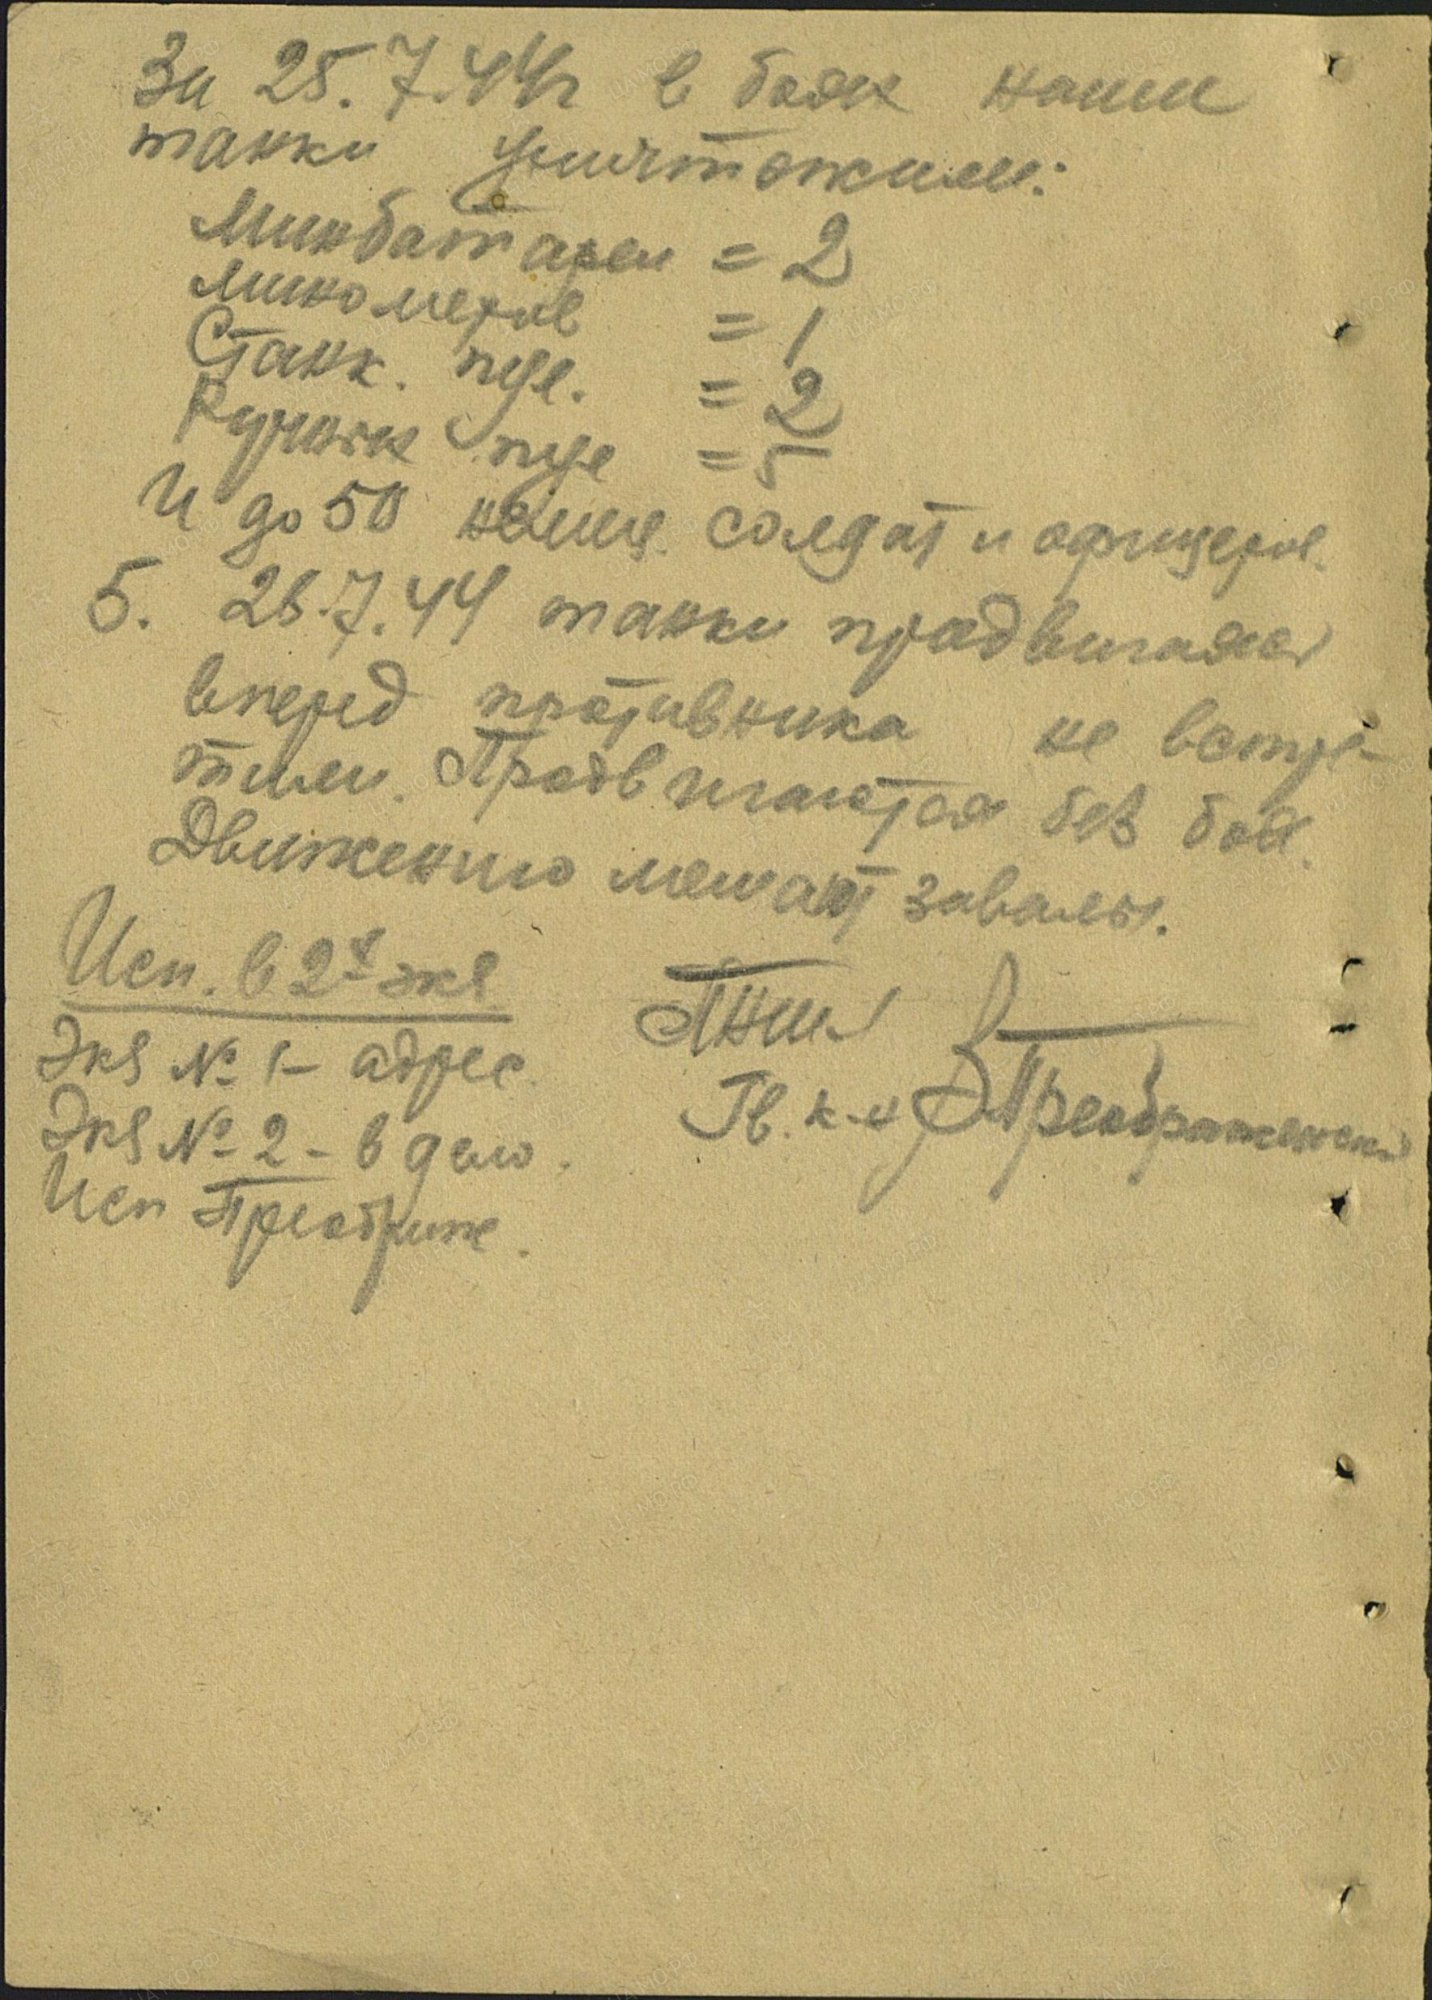 За 25.7.44г в боях наши
танки уничтожили:
Минбатареи = 2
минометов = 1
Станк. пул. = 2
Ручных пул = 5
И до 50 немец. солдат и офицеров.
5. 26.7.44 танки продвигаясь
вперед противника не встре-
тили. Продвигаются без боя.
Движению мешают завалы.
Исп. в 2х экз
Экз № 1 – адрес.
Экз № 2 – в дело.
Исп Преображ.
ПНШ 1
Гв. к-н Преображенский